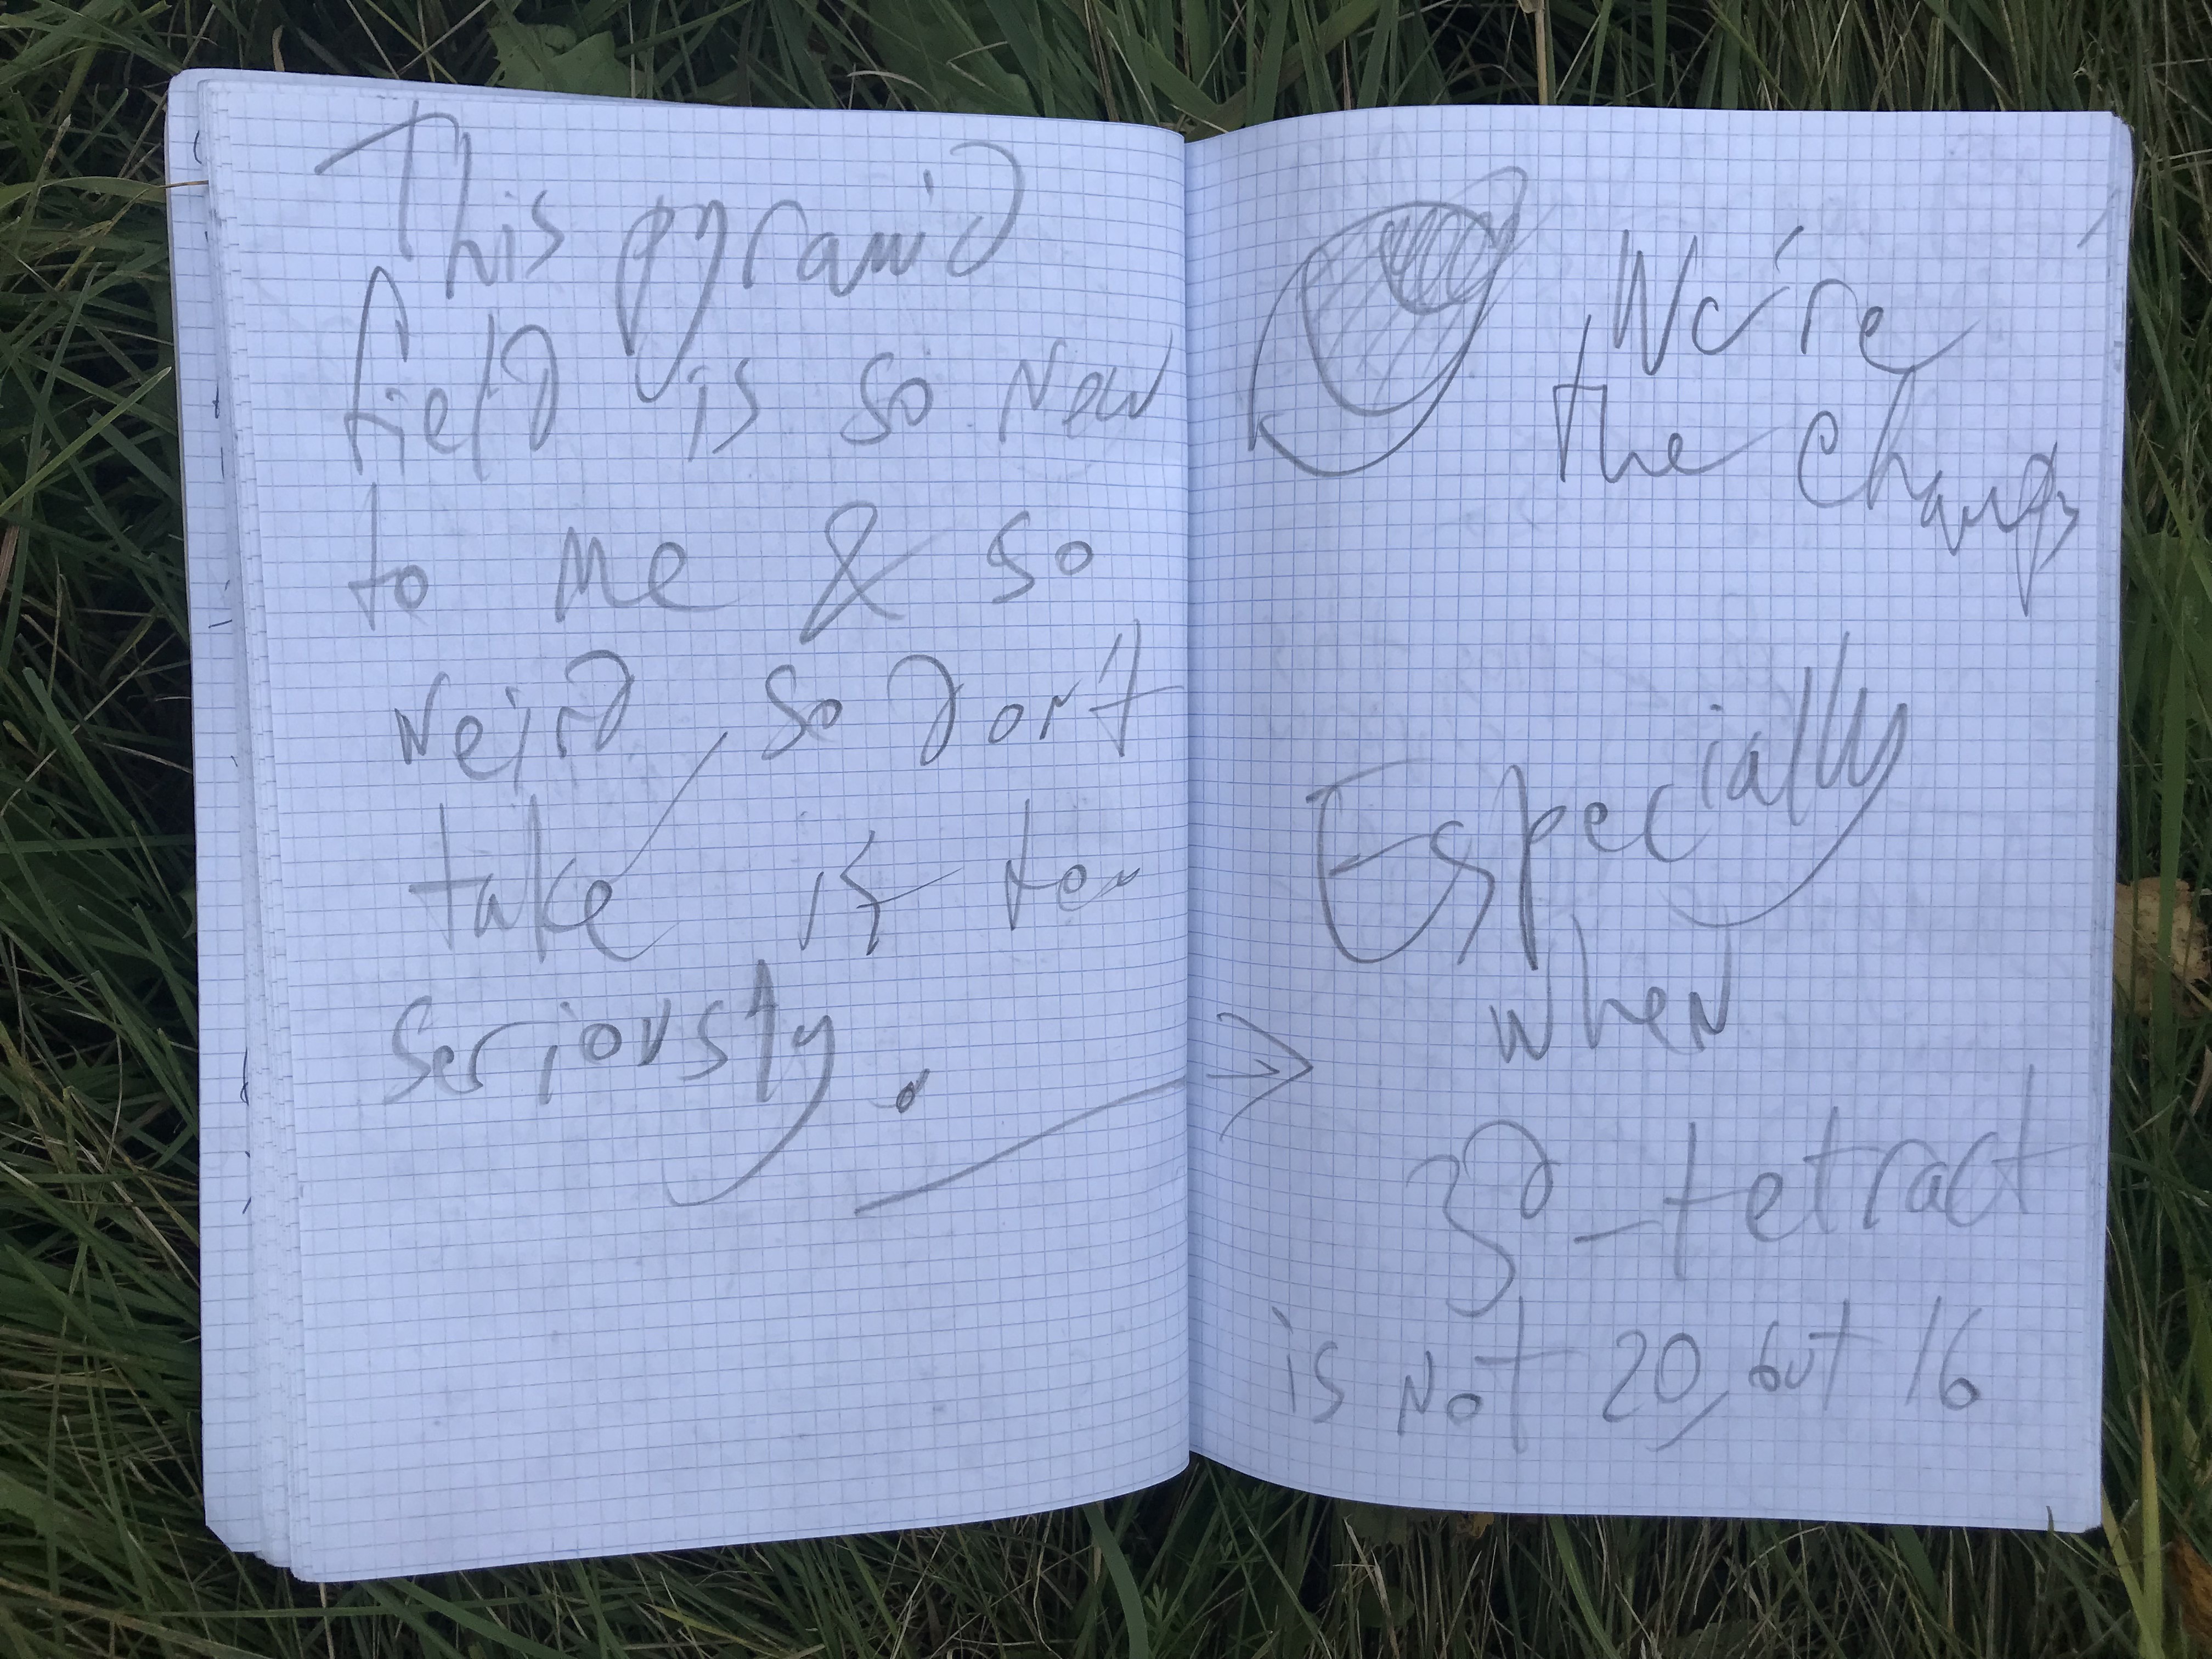 This Pyramid
field is so new
to me & so
weird so don't
take it too
seriously.
the
Especially
when
So-tetract
is not 20, but 16